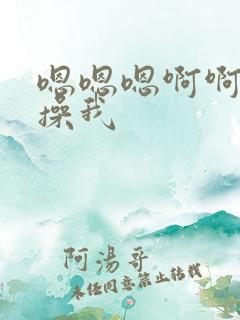 嗯嗯嗯啊啊
操我
阿汤哥
未经同意禁止转载